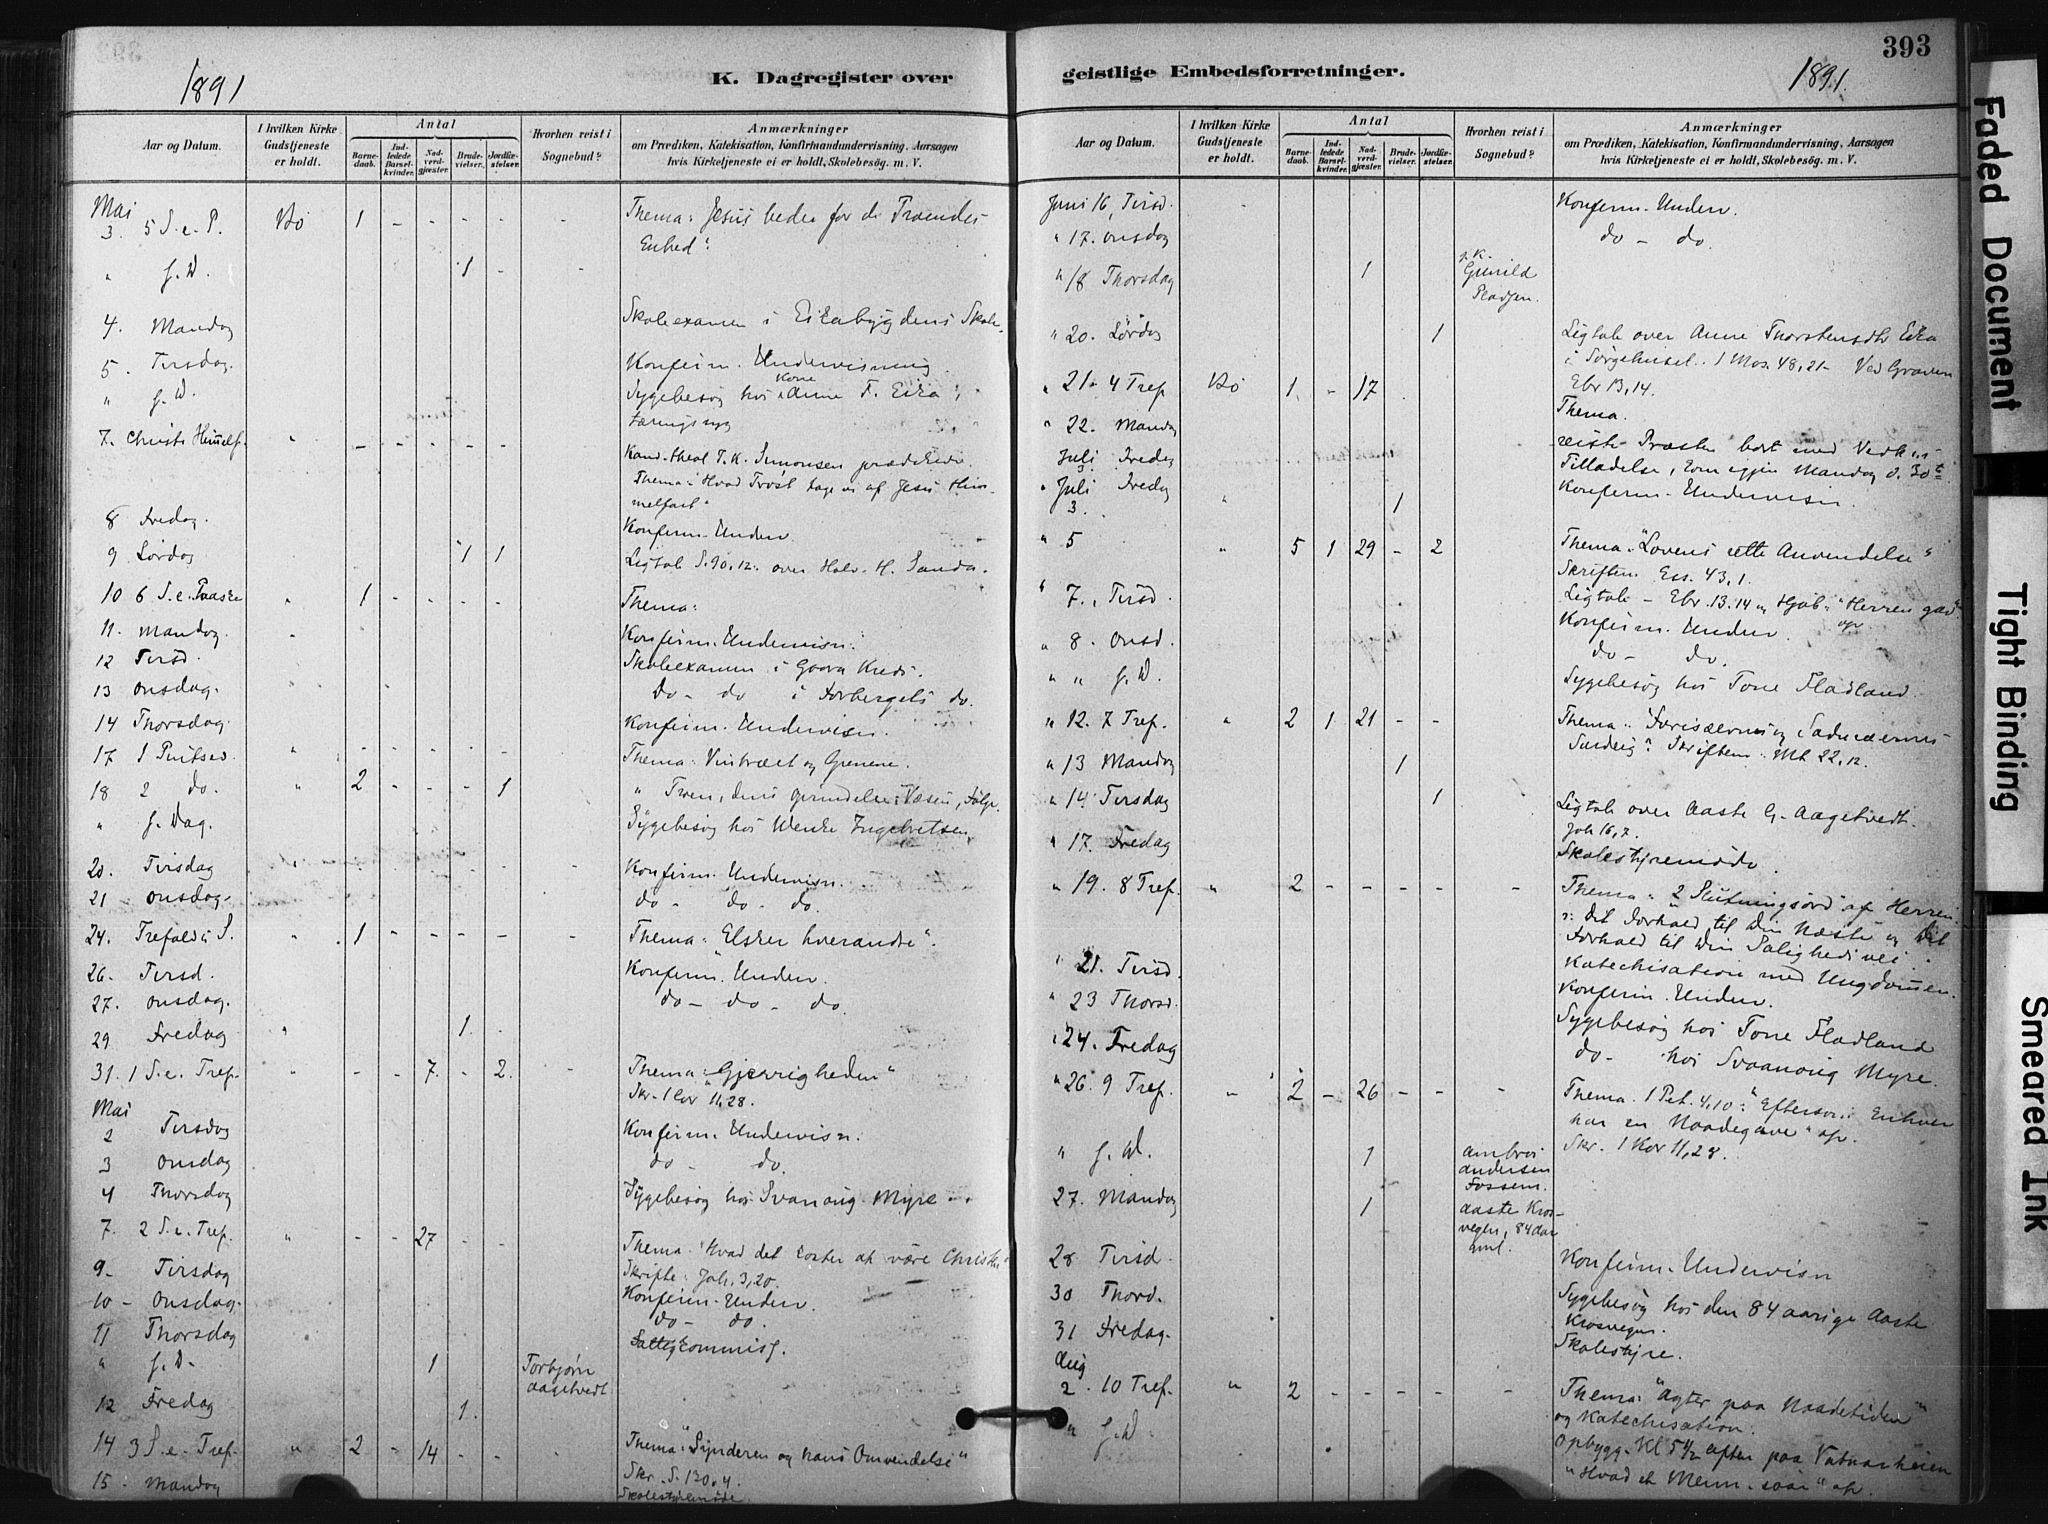 393
1891
K. Dagregister over
geistlige Embedsforretninger.
1891.
Aar og Datum.
I hvilken Kirke Gudstjeneste er holdt.
Antal
Barnedaab.
Indledede Barselkvinder.
Nadverdgjæster.
Brudevielser.
Jordfæstelser.
Hvorhen reist i Sognebud?
Anmærkninger
om Prædiken, Katekisation, Konfirmandundervisning. Aarsagen
hvis Kirketjeneste ei er holdt, Skolebesøg. m. V.
Mai
3. 5 S. e. P. Bø 1 - - - - - Thema: "Jesus beder for de Troendes
Enhed".
" s. D. 1 -
4. Mandag Skoleexamen i Eikabygdens Skole
5. Tirsdag. Konfirm. Undervisning.
" s. D. Sygebesøg hos Kone Anne T. Eika,
tæringssyg
7. Christi Himmelf. " - - - - -
Kand. theol. T. K. Simonsen prædikede.
Thema: "Hvad Trøst tage vi af Jesu Him-
melfart"
8 Fredag. Konfirm. Underv.
9 Lørdag 1 1 Ligtale S. 90,12. over Halv. H. Sanda.
10 6 S. e. Paaske " 1 - - - - Thema:
11. Mandag. Konfirm. Undervisn.
12 Tirsd. Skoleexamen i Gaara Kreds.
13 Onsdag. do - do i Forbergets do.
14 Thorsdag. Konfirm. Undervisn.
17 1 Pintsed. " - - - - - Thema: Vintræet og Grenene.
18 2 do. " 2 - - - 1 " Troen, dens Oprindelse, Væsen, Følge
" s. Dag. Sygebesøg hos Wenke Ingebretsen
20. Tirsdag Konfirm. Undervisn.
21 Onsdag. do - do - do.
24. Trefold. S. " 1 - - - - - Thema: "Elsker hverandre".
26. Tirsd. Konfirm. Underv.
27. Onsdag. do - do - do.
29 Fredag " 1.
31. 1 S. e. Tref. " - - 7. - 2. - Thema: "Gjerrigheden"
Skr. 1 Cor 11,28.
Mai
2 Tirsdag Konfirm. Undervisn.
3 Onsdag do - do.
4 Thorsdag Sygebesøg hos Svanaug Myre.
7. 2 S. e. Tref. " - - 27 - - Thema: "Hvad det koster at være Christen"
Skrifte: Joh. 3,20.
9. Tirsdag Konfirm. Underv.
10 - Onsdag. do - do.
11 Thorsdag
" s. D. 1 Torbjørn
Aagetvedt
12 Fredag 1.
14 3 S. e. Tref. " 2 - 14 - - - Thema: "Synderen og hans Omvendelse"
Skr. S. 130,4.
15. Mandag Skolestyremøde.
Aar og Datum.
I hvilken Kirke Gudstjeneste er holdt.
Antal
Barnedaab.
Indledede Barselkvinder.
Nadverdgjæster.
Brudevielser.
Jordfæstelser.
Hvorhen reist i Sognebud?
Anmærkninger
om Prædiken, Katekisation, Konfirmandundervisning, Aarsagen
hvis Kirketjeneste ei er holdt, Skolebesøg. m. V.
Juni 16, Tirsd. - Konfirm. Underv.
" 17. Onsdag do - do.
" 18 Thorsdag 1 p. K.
Gunild
Pladsen.
" 20. Lørdag 1 Ligtale over Anne Thorstensdtr Eika
i Sørgehuset. 1 Mos. 48,21 - Ved Graven
Ebr 13,14.
" 21 - 4 Tref Bø 1. - 17 Thema.
" 22. Mandag reiste Præsten bort med
Tilladelse, kom igjen Mandag d. 30te.
Juli
3. Fredag
" Juli
3. Fredag " 1 Konfirm. Undervisn.
" 5 " 5 1 29 - 2 Thema: "Lovens rette Anvendelse"
Skriftem. Ess. 43,1.
Ligtale - Ebr. 13.14 og Hjob: "Herren gav"
" 7. Tirsd. Konfirm. Underv.
" 8. Onsd. do - do.
" " s. D. Sygebesøg hos Tone Fladland.
" 12. 7 Tref. " 2 1 21 - - Thema: "Farisæernes og Saducæernes
Surdeig". Skriftem. Mt 22,12.
" 13 Mandag 1
" 14 Tirsdag 1 Ligtale over Aaste G. Aagetvedt.
Joh 16,7.
" 17. Fredag Skolestyremøde.
" 19. 8 Tref. " 2 - - - - - Thema: "2 Slutningsord" af Herren:
Dit Forhold til Din Næste og Dit
Forhold til Din Saligheds vei.
Katechisation med Ungdommen.
" 21. Tirsd. Konfirm. Underv.
" 23 Thorsd. Sygebesøg hos Tone Fladland
" 24. Fredag do - hos Svanaug Myre.
" 26. 9 Tref. " 2 - 26 - - - Thema. 1 Pet. 4,10: "Eftersom Enhver
har en Naadegave"
Skr. 1 Kor 11,28.
" s. D. 1 Ambros
Andersen
Fossem.
27. Mandag 1 Aaste Kros-
vegen, 84 Aar
gml.
28 Tirsd. Konfirm. Undervisn
30 Thord. Sygebesøg hos den 84 aarige Aaste
Krosvegen.
31 Fredag. Skolestyre.
Aug
2. 10 Tref. " 2 - - - - - Thema: "Agter paa Naadetiden"
og Katechisation.
" s. D. - Opbygg. Kl 5½ Eften paa Vatnarheien